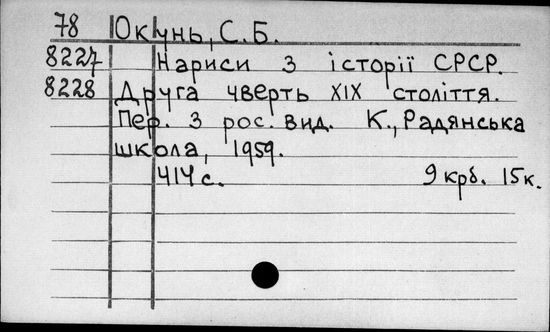 78 Окунь, С.Б.
8227 Нариси з історії СРСР.
8228 Друга чверть XIX століття.
Пер. з рос. вид. К., Радянська
школа, 1959.
414 с. 9 крб. 15 к.